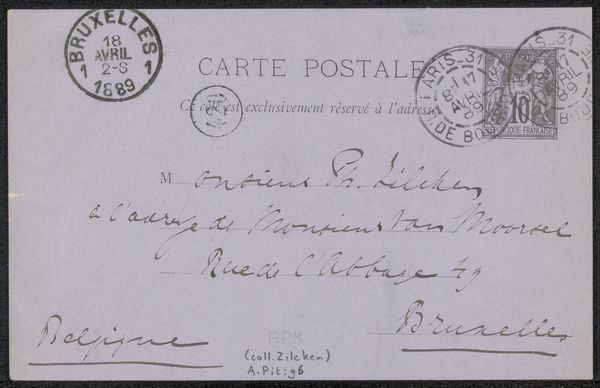 BRUXELLES
18
AVRIL
2-S
1 1
1889
CARTE POSTALE
Ce côté est exclusivement réservé à l'adresse
PARIS_31
17
AVRIL
89
DE BO
10
REPUBLIQUE FRANÇAISE
Monsieur Ph. Zilcken
à l'adresse de Monsieur van Moorsel
Rue de l'Abbaye 49
Bruxelles
Belgique
RPK
(coll. Zilcken)
A. Pit: 96